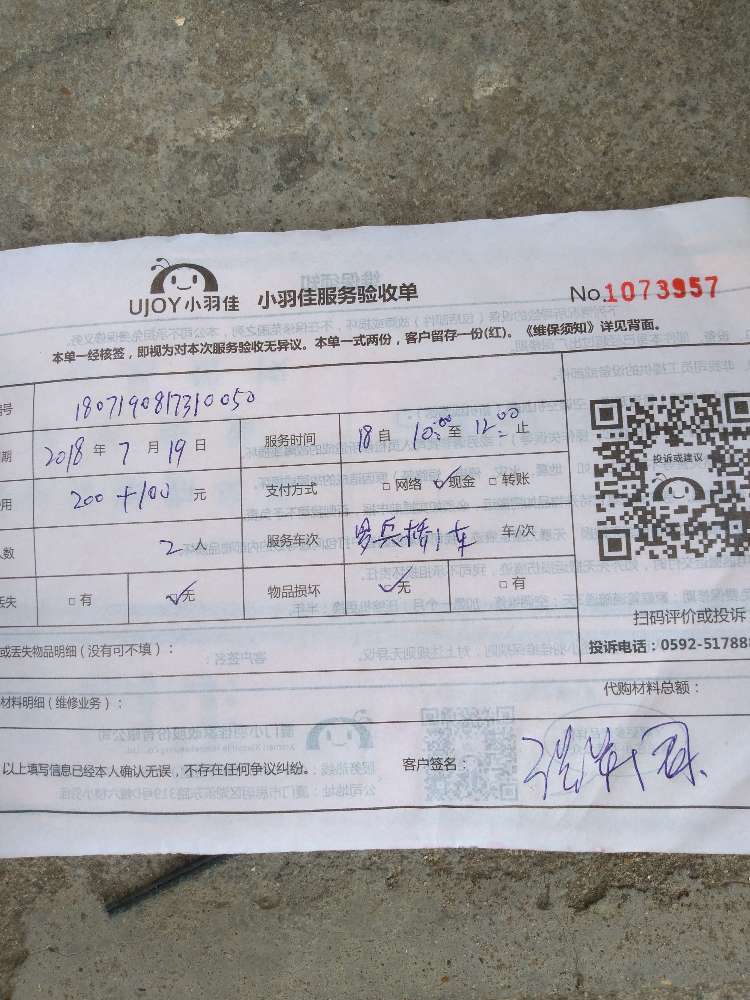 UJOY小羽佳 小羽佳服务验收单 No.1073957
本单一经核签，即视为对本次服务验收无异议。本单一式两份，客户留存一份(红)。《维保须知》详见背面。
号 1807190817310050
期 2018 年 7 月 19 日 服务时间 18 自 10:00 至 12:00 止
用 200+100 元 支付方式 □ 网络 ✓现金 □ 转账
人数 2 人 服务车次 1车 车/次
丢失 □ 有 ✓无 物品损坏 ✓无 □ 有
投诉或建议
扫码评价或投诉
或丢失物品明细（没有可不填）：
投诉电话：0592-51788
材料明细（维修业务）：
代购材料总额：
以上填写信息已经本人确认无误，不存在任何争议纠纷。 客户签名：